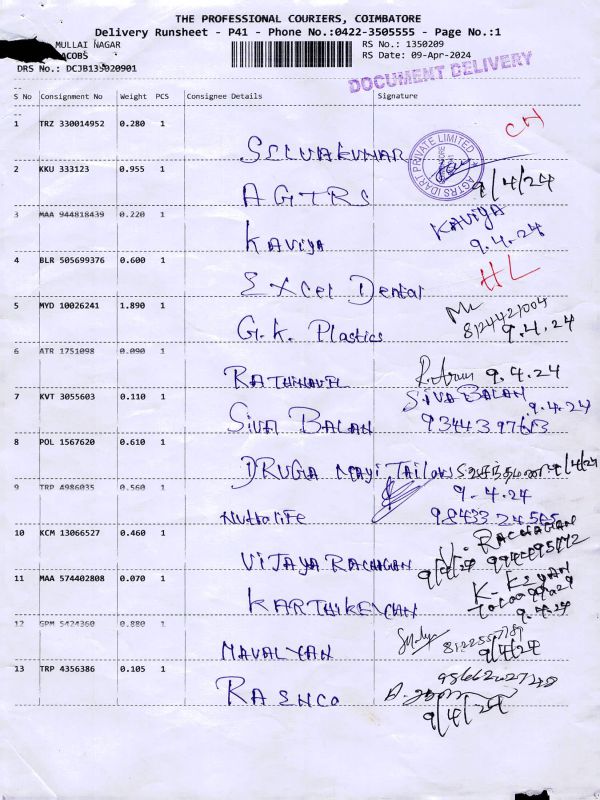 THE PROFESSIONAL COURIERS, COIMBATORE
Delivery Runsheet - P41 - Phone No.:0422-3505555 - Page No.:1
MULLAI NAGAR
RS No.: 1350209
JACOBS
RS Date: 09-Apr-2024
DRS No.: DCJB135020901
DOCUMENT DELIVERY
S No Consignment No Weight PCS Consignee Details Signature
1 TRZ 330014952 0.280 1
SELVAKUMAR
AGTRS IDART PRIVATE LIMITED
2 KKU 333123 0.955 1
AGTRS 9/4/24
3 MAA 944818439 0.220 1
Kaviya KAVIYA
9.4.24
4 BLR 505699376 0.600 1
EXCel Dental HL
5 MYD 10026241 1.890 1
G.K. Plastics 8124421004
9.4.24
6 ATR 1751098 0.090 1
RATHINAVEL R.Arun 9.4.24
7 KVT 3055603 0.110 1
SIVA BALAN SIVA BALAN 9.4.24
8 POL 1567620 0.610 1
DRUGA MAYI TAILORS 9/4/24
9 TRP 4986035 0.560 1
9.4.24
Nutralife 98433 24565
10 KCM 13066527 0.460 1
VIJAYA RAGHAVAN
9/4/24
11 MAA 574402808 0.070 1
KARTHIKEYAN
9.4.24
12 GPM 5424360 0.880 1
MAVALYAN
9/4/24
13 TRP 4356386 0.105 1
RASHCO
9/4/24